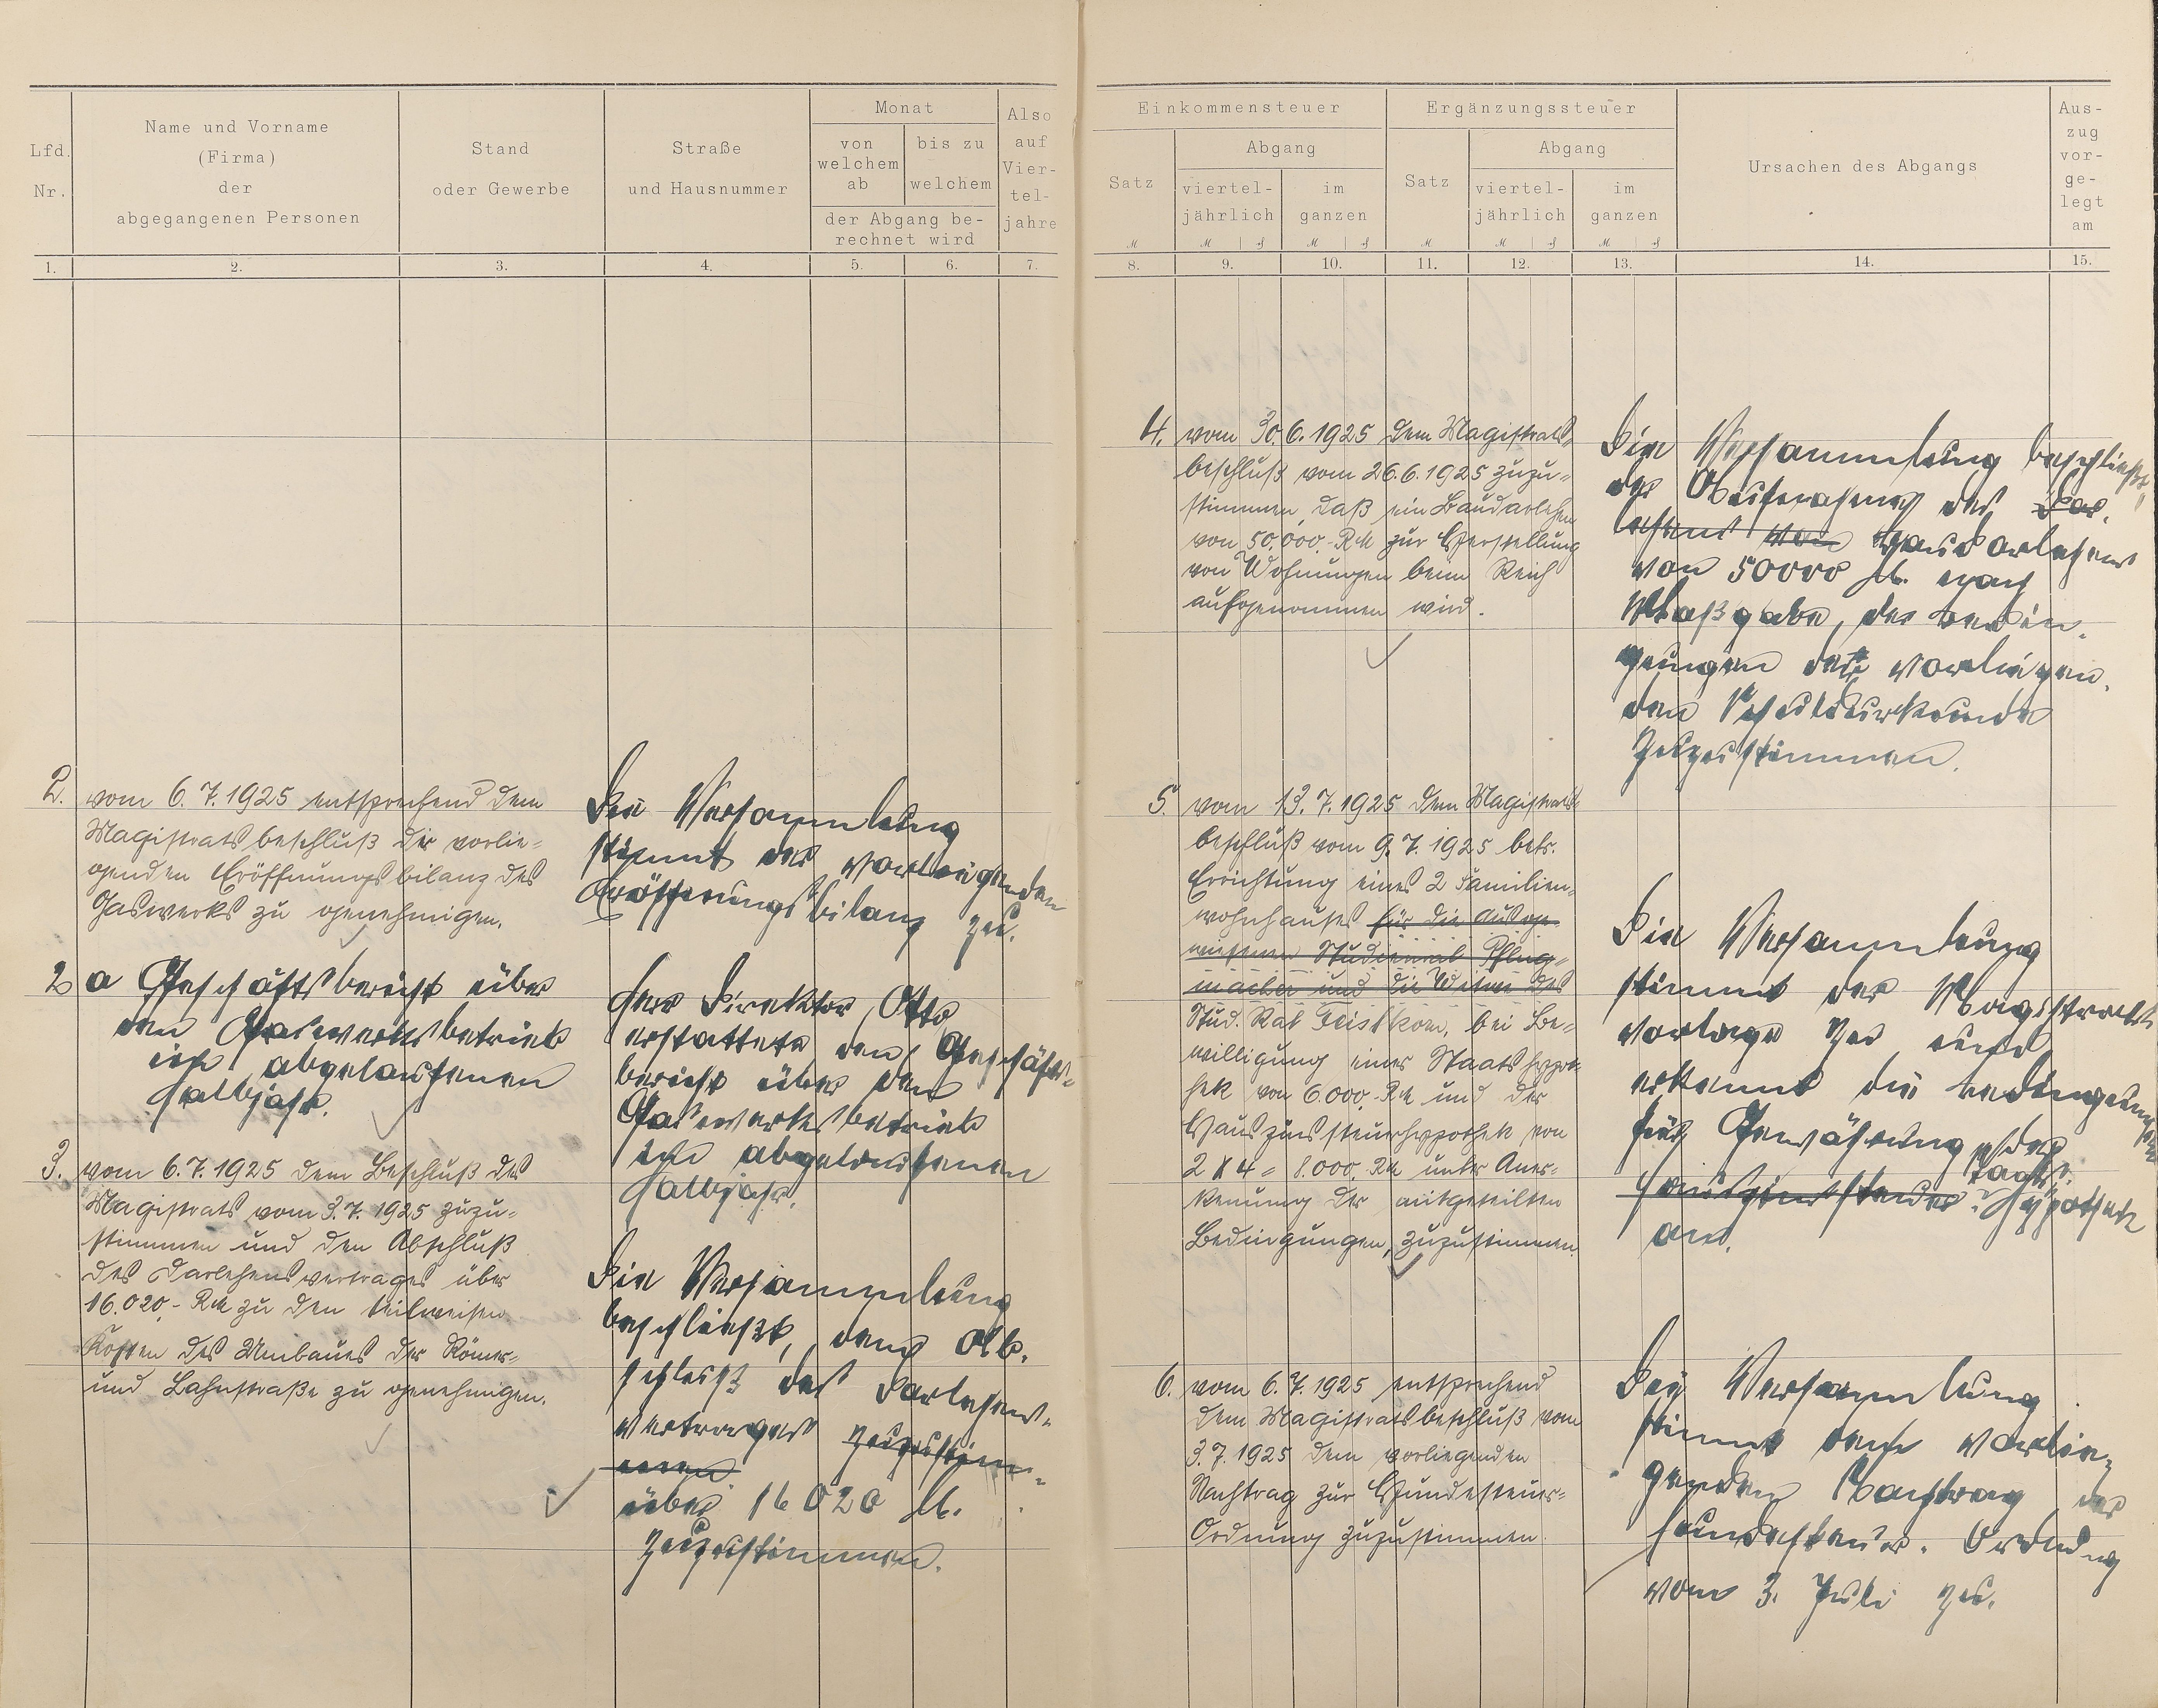 Lfd. Nr.
Name und Vorname
(Firma)
der
abgegangenen Personen
Stand
oder Gewerbe
Straße
und Hausnummer
Monat
von
welchem
ab
bis zu
welchem
der Abgang be-
rechnet wird
Also
auf
Vier-
tel-
jahre
1. 2. 3. 4. 5. 6. 7.
2. vom 6.7.1925 entsprechend dem
Magistratsbeschluß die vorlie=
genden Eröffnungsbilanz des
Gaswerks zu genehmigen.
Die Versammlung
stimmt der vorliegenden
Eröffnungsbilanz zu.
2 a Geschäftsbericht über
den Gaswerksbetrieb
im abgelaufenen
Halbjahr.
Herr Direktor Otto
erstattete den Geschäfts=
bericht über den
Gaswerksbetrieb
im abgelaufenen
Halbjahr.
3. vom 6.7.1925 dem Beschluß des
Magistrats vom 3.7.1925 zuzu=
stimmen und den Abschluß
des Darlehensvertrages über
16.020,- RM zu den teilweisen
Kosten des Umbaues der Römer=
und Lahnstraße zu genehmigen.
Die Versammlung
beschließt, dem Ab-
schluß des Darlehens-
vertrages zuzustim-
men
über 16 020 M.
zuzustimmen.
Einkommensteuer
Satz
Abgang
viertel-
jährlich
im
ganzen
Ergänzungssteuer
Satz
Abgang
viertel-
jährlich
im
ganzen
Ursachen des Abgangs
Aus-
zug
vor-
ge-
legt
am
8. 9. 10. 11. 12. 13. 14. 15.
4. vom 30.6.1925 dem Magistrats=
beschluß vom 26.6.1925 zuzu=
stimmen, daß ein Baudarlehen
von 50.000,- RM zur Herstellung
von Wohnungen beim Reich
aufgenommen wird.
Die Versammlung beschließt,
der Aufnahme des Dar-
lehens von Baudarlehens
von 50000 M. nach
Maßgabe der Bedin-
gungen der vorliegen-
den Schuldurkunde
zuzustimmen.
5. vom 13.7.1925 dem Magistrats=
beschluß vom 9.7.1925 betr.
Errichtung eines 2 Familien=
wohnhauses für die Ausge=
wiesenen Studienrat Pflug=
macher und die Witwe des
Stud. Rat Feistkorn, bei Be=
willigung einer Staatshypot=
hek von 6.000,- RM und der
Hauszinssteuerhypothek von
2 x 4 = 8.000,- RM unter Aner=
kennung der mitgeteilten
Bedingungen, zuzustimmen.
Die Versammlung
stimmt der Magistrats
vorlage zu und
erkennt die Bedingungen
für Gewährung der
Staats
Hauszinssteuer-Hypothek
an.
6. vom 6.7.1925 entsprechend
dem Magistratsbeschluß vom
3.7.1925 dem vorliegenden
Nachtrag zur Hundesteuer=
Ordnung zuzustimmen.
Die Versammlung
stimmt dem vorlie=
genden Nachtrag der
Hundesteuer-Ordnung
vom 3. Juli zu.